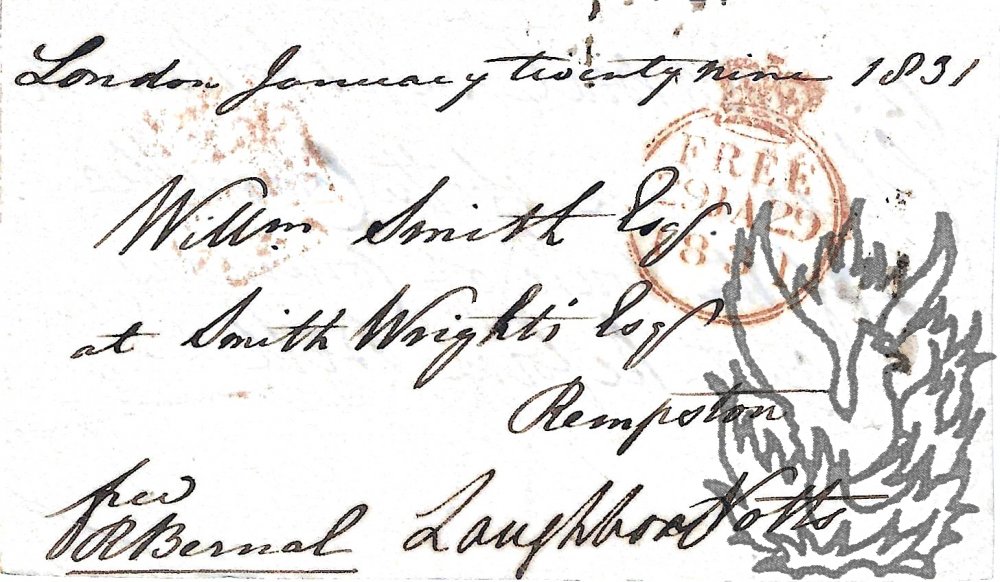 London January twenty nine 1831
FREE
29 JA 29
1831
Willm Smith Esqr.
at Smith Wright's Esqr
Rempston
free
R Bernal
Loughboro Notts